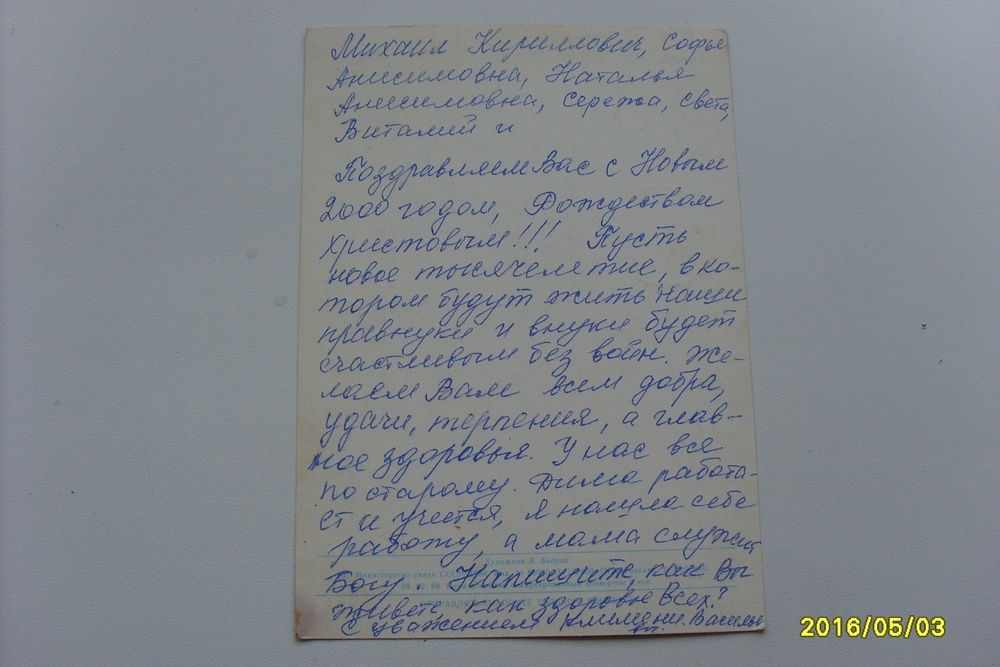 Михаил Кириллович, Софья
Анисимовна, Наталья
Анисимовна, Сережа, Света,
Виталий и
Поздравляем Вас с Новым
2000 годом, Рождеством
Христовым!!! Пусть
новое тысячелетие, в ко-
тором будут жить наши
правнуки и внуки будет
счастливым без войн. Же-
лаем Вам всем добра,
удачи, терпения, а глав-
ное здоровья. У нас все
по старому. Дима работа-
ет и учется, я нашла себе
работу, а мама служит
Художник В. Бедрак
Богу. Напишите, как Вы
Министерство связи
08. 02. 88.
живете, как здоровье Всех?
С уважением
2016/05/03